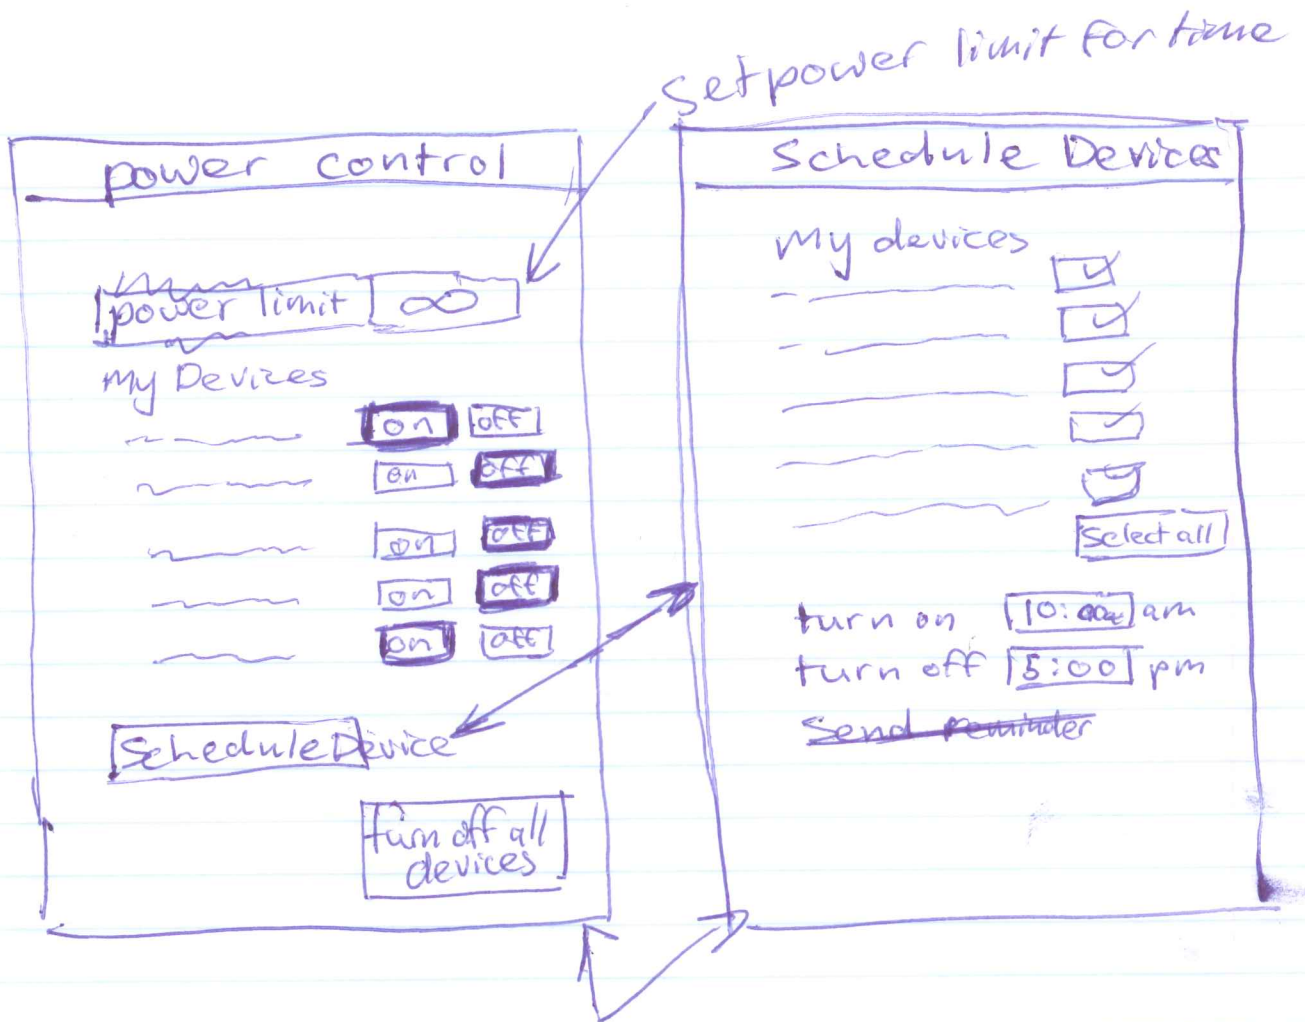 Set power limit for time
power control
power limit ∞
My Devices
on off
on off
on off
on off
on off
Schedule Device
turn off all
devices
Schedule Devices
My devices
Select all
turn on 10:00 am
turn off 5:00 pm
Send reminder